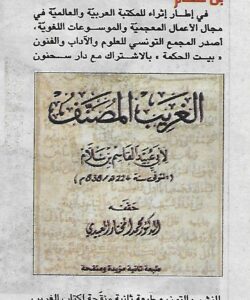 في إطار إثراء للمكتبة العربية والعالمية في
مجال الأعمال المعجمية والموسوعات اللغوية،
أصدر المجمع التونسي للعلوم والآداب والفنون
"بيت الحكمة" بالاشتراك مع دار سحنون
الغريب المصنف
لأبي عبيد القاسم بن سلام
(المتوفى سنة 224هـ/838م)
حققه
الدكتور محمد المختار العبيدي
طبعة ثانية مزيدة ومنقحة
للنشر والتوزيع طبعة ثانية منقحة لكتاب الغريب